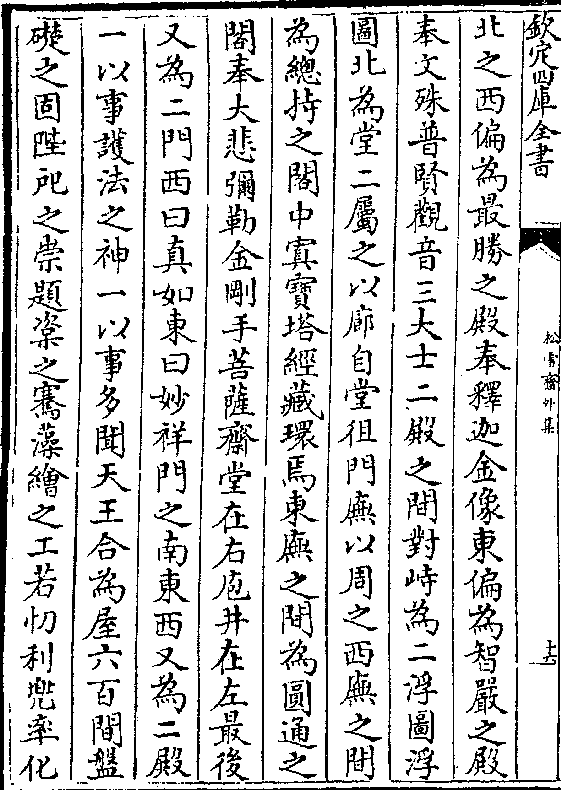 欽定四庫全書
松雪齋外集
十六
北之西偏為最勝之殿奉釋迦金像東偏為智嚴之殿
奉文殊普賢觀音三大士二殿之間對峙為二浮圖浮
圖北為堂二屬之以廊自堂徂門廡以周之西廡之間
為總持之閣中寘寳塔經藏環焉東廡之間為圓通之
閣奉大悲彌勒金剛手菩薩齋堂在右庖井在左最後
又為二門西曰真如東曰妙祥門之南東西又為二殿
一以事護法之神一以事多聞天王合為屋六百間盤
礎之固陛戺之崇題㮤之騫藻繪之工若忉利兜率化